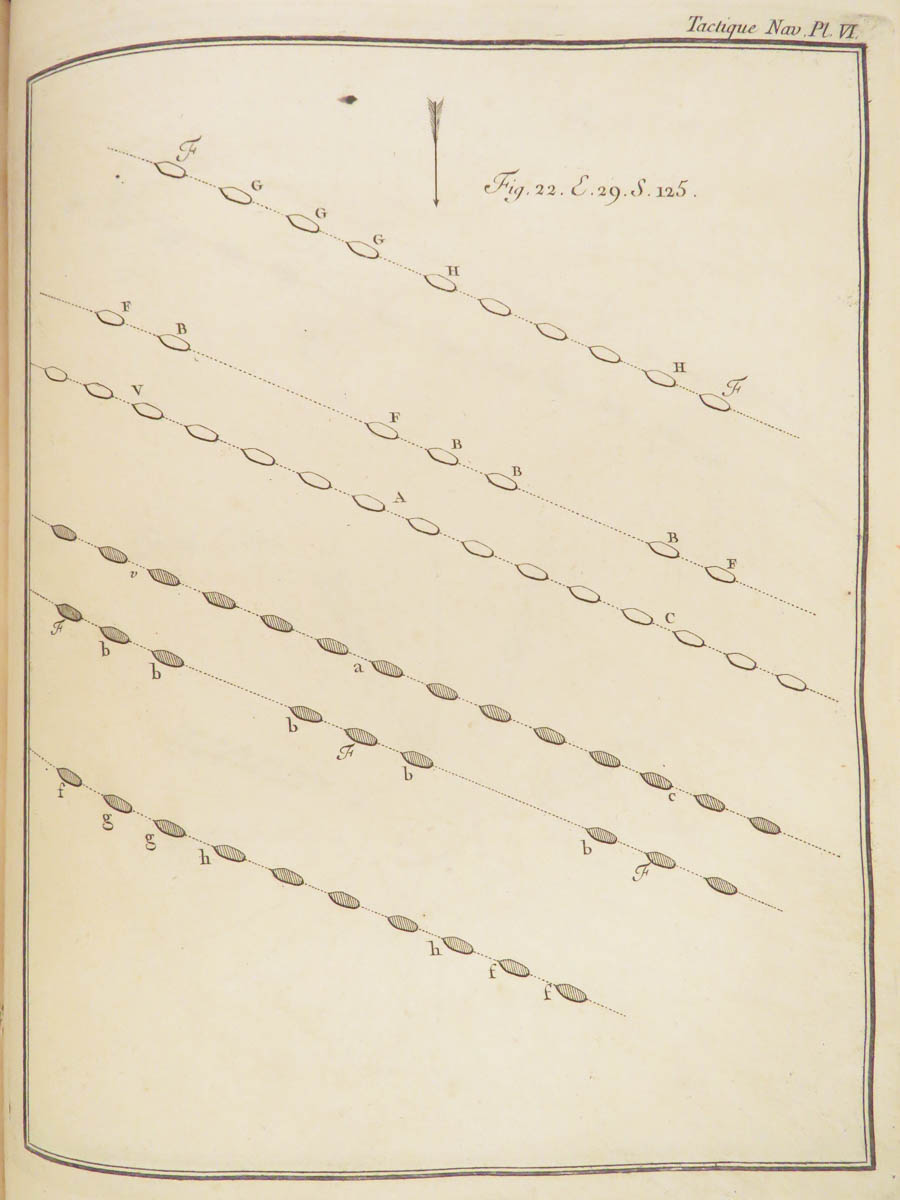 Tactique Nav. Pl. VI.
Fig. 22. E. 29. S. 125.
F
G
G
G
H
H
F
F
B
F
B
B
B
F
V
A
C
v
a
c
F
b
b
b
F
b
b
F
f
g
g
h
h
f
f